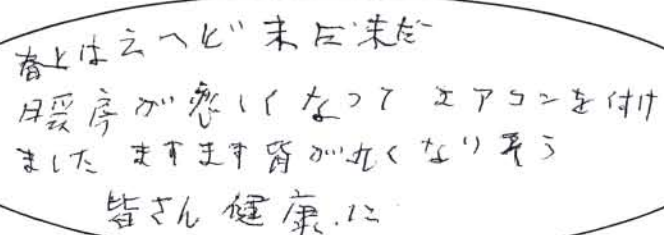 春とは云へど未だ未だ
暖房が恋しくなって エアコンを付け
ました ますます背が丸くなり そう
皆さん 健康に